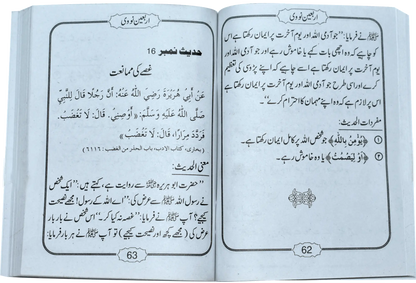 اربعین نووی
ﷺ نے فرمایا: ”جو آدمی اللہ اور یوم آخرت پر ایمان رکھتا ہے اس
کو چاہیے کہ وہ اچھی بات کہے یا خاموش رہے اور جو آدمی اللہ اور
یوم آخرت پر ایمان رکھتا ہے اسے چاہیے کہ اپنے پڑوسی کی تعظیم
کرے اور اسی طرح جو آدمی اللہ اور یوم آخرت پر ایمان رکھتا ہے
اس پر لازم ہے کہ وہ اپنے مہمان کا احترام کرے۔“
مفردات الحدیث:
① ﴿يُؤْمِنُ بِاللّٰهِ﴾ جو شخص اللہ پر کامل ایمان رکھتا ہے۔
② ﴿أَوْ لِيَصْمُتْ﴾ یا وہ خاموش رہے۔
62
اربعین نووی
حدیث نمبر 16
غصے کی ممانعت
عَنْ أَبِي هُرَيْرَةَ رَضِيَ اللّٰهُ عَنْهُ: أَنَّ رَجُلًا قَالَ لِلنَّبِيِّ
صَلَّى اللّٰهُ عَلَيْهِ وَسَلَّمَ: ﴿أَوْصِنِي. قَالَ: لَا تَغْضَبْ.
فَرَدَّدَ مِرَارًا، قَالَ: لَا تَغْضَبْ﴾
(بخاری، کتاب الادب، باب الحذر من الغضب: ۶۱۱۶)
معنی الحدیث:
”حضرت ابو ہریرہ سے روایت ہے، کہتے ہیں: ”ایک شخص
نے رسول اللہ ﷺ سے عرض کی: ”اے اللہ کے رسول! مجھے نصیحت
کیجیے؟ آپ ﷺ نے فرمایا: ”غصہ نہ کیا کر۔“ اس شخص نے بار بار
عرض کی (مجھے کچھ اور نصیحت کیجیے) تو آپ ﷺ نے ہر بار فرمایا:
63